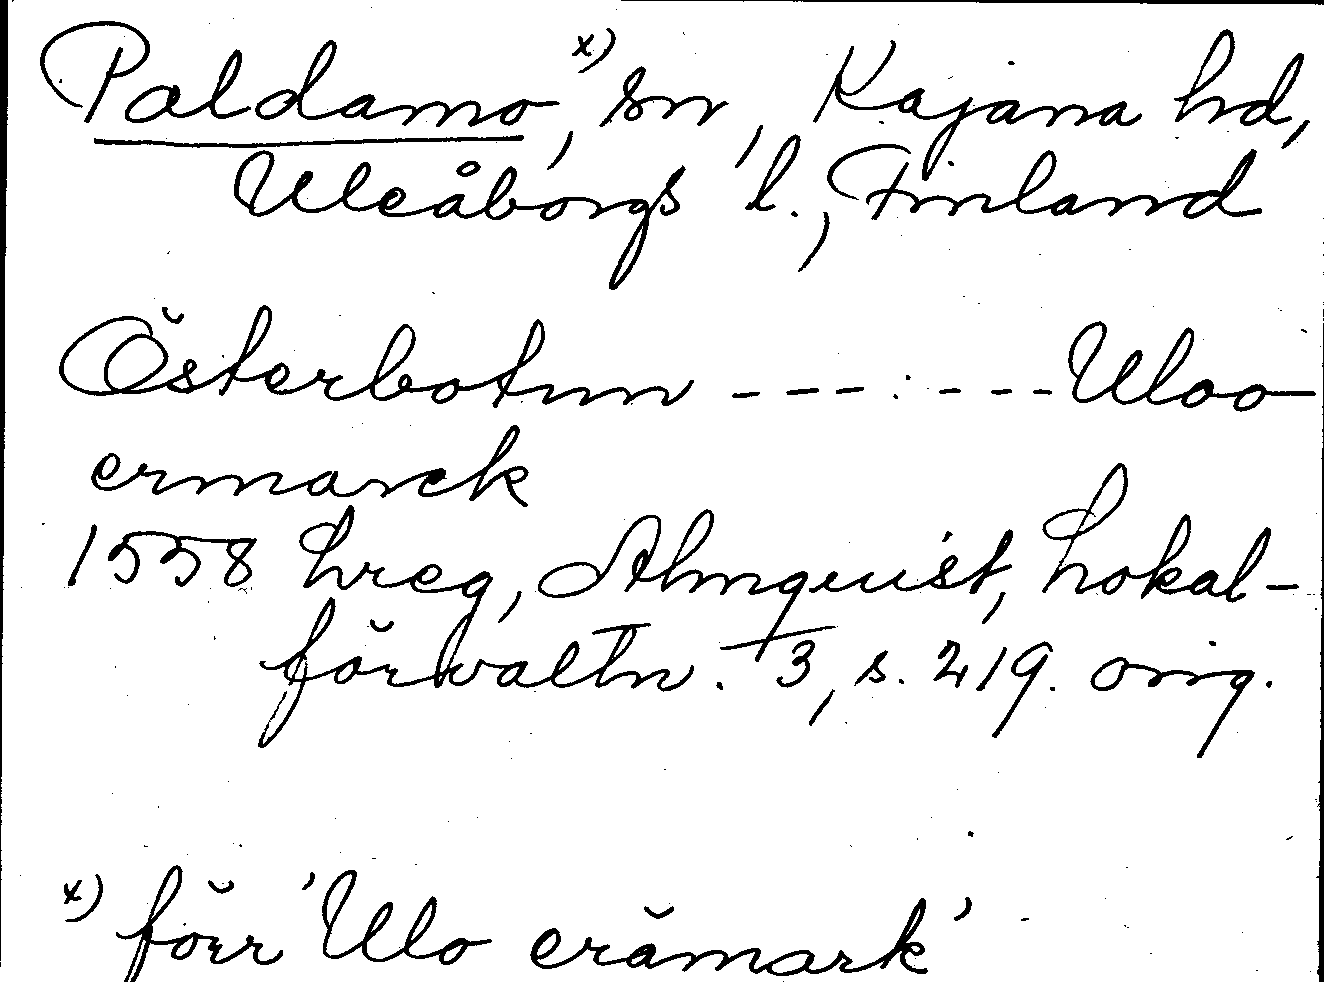 Paldamo,ˣ⁾ sn, Kajana hd,
Uleåborgs l., Finland
Österbotnn - - - : - - - Uloo
ermarck
1558 hreg, Almquist, Lokal-
förvaltn. I3, s. 219. orig.
x) förr 'Ulo erämark'